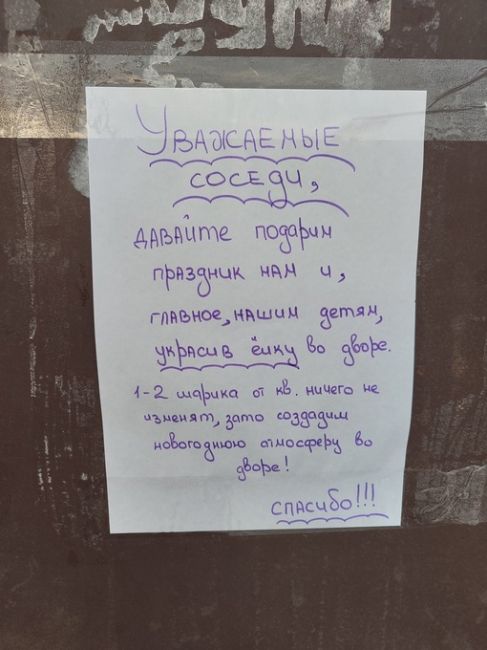 Уважаемые
соседи,
давайте подарим
праздник нам и,
главное, нашим детям,
украсив ёлку во дворе.
1-2 шарика от кв. ничего не
изменят, зато создадим
новогоднюю атмосферу во
дворе!
спасибо!!!